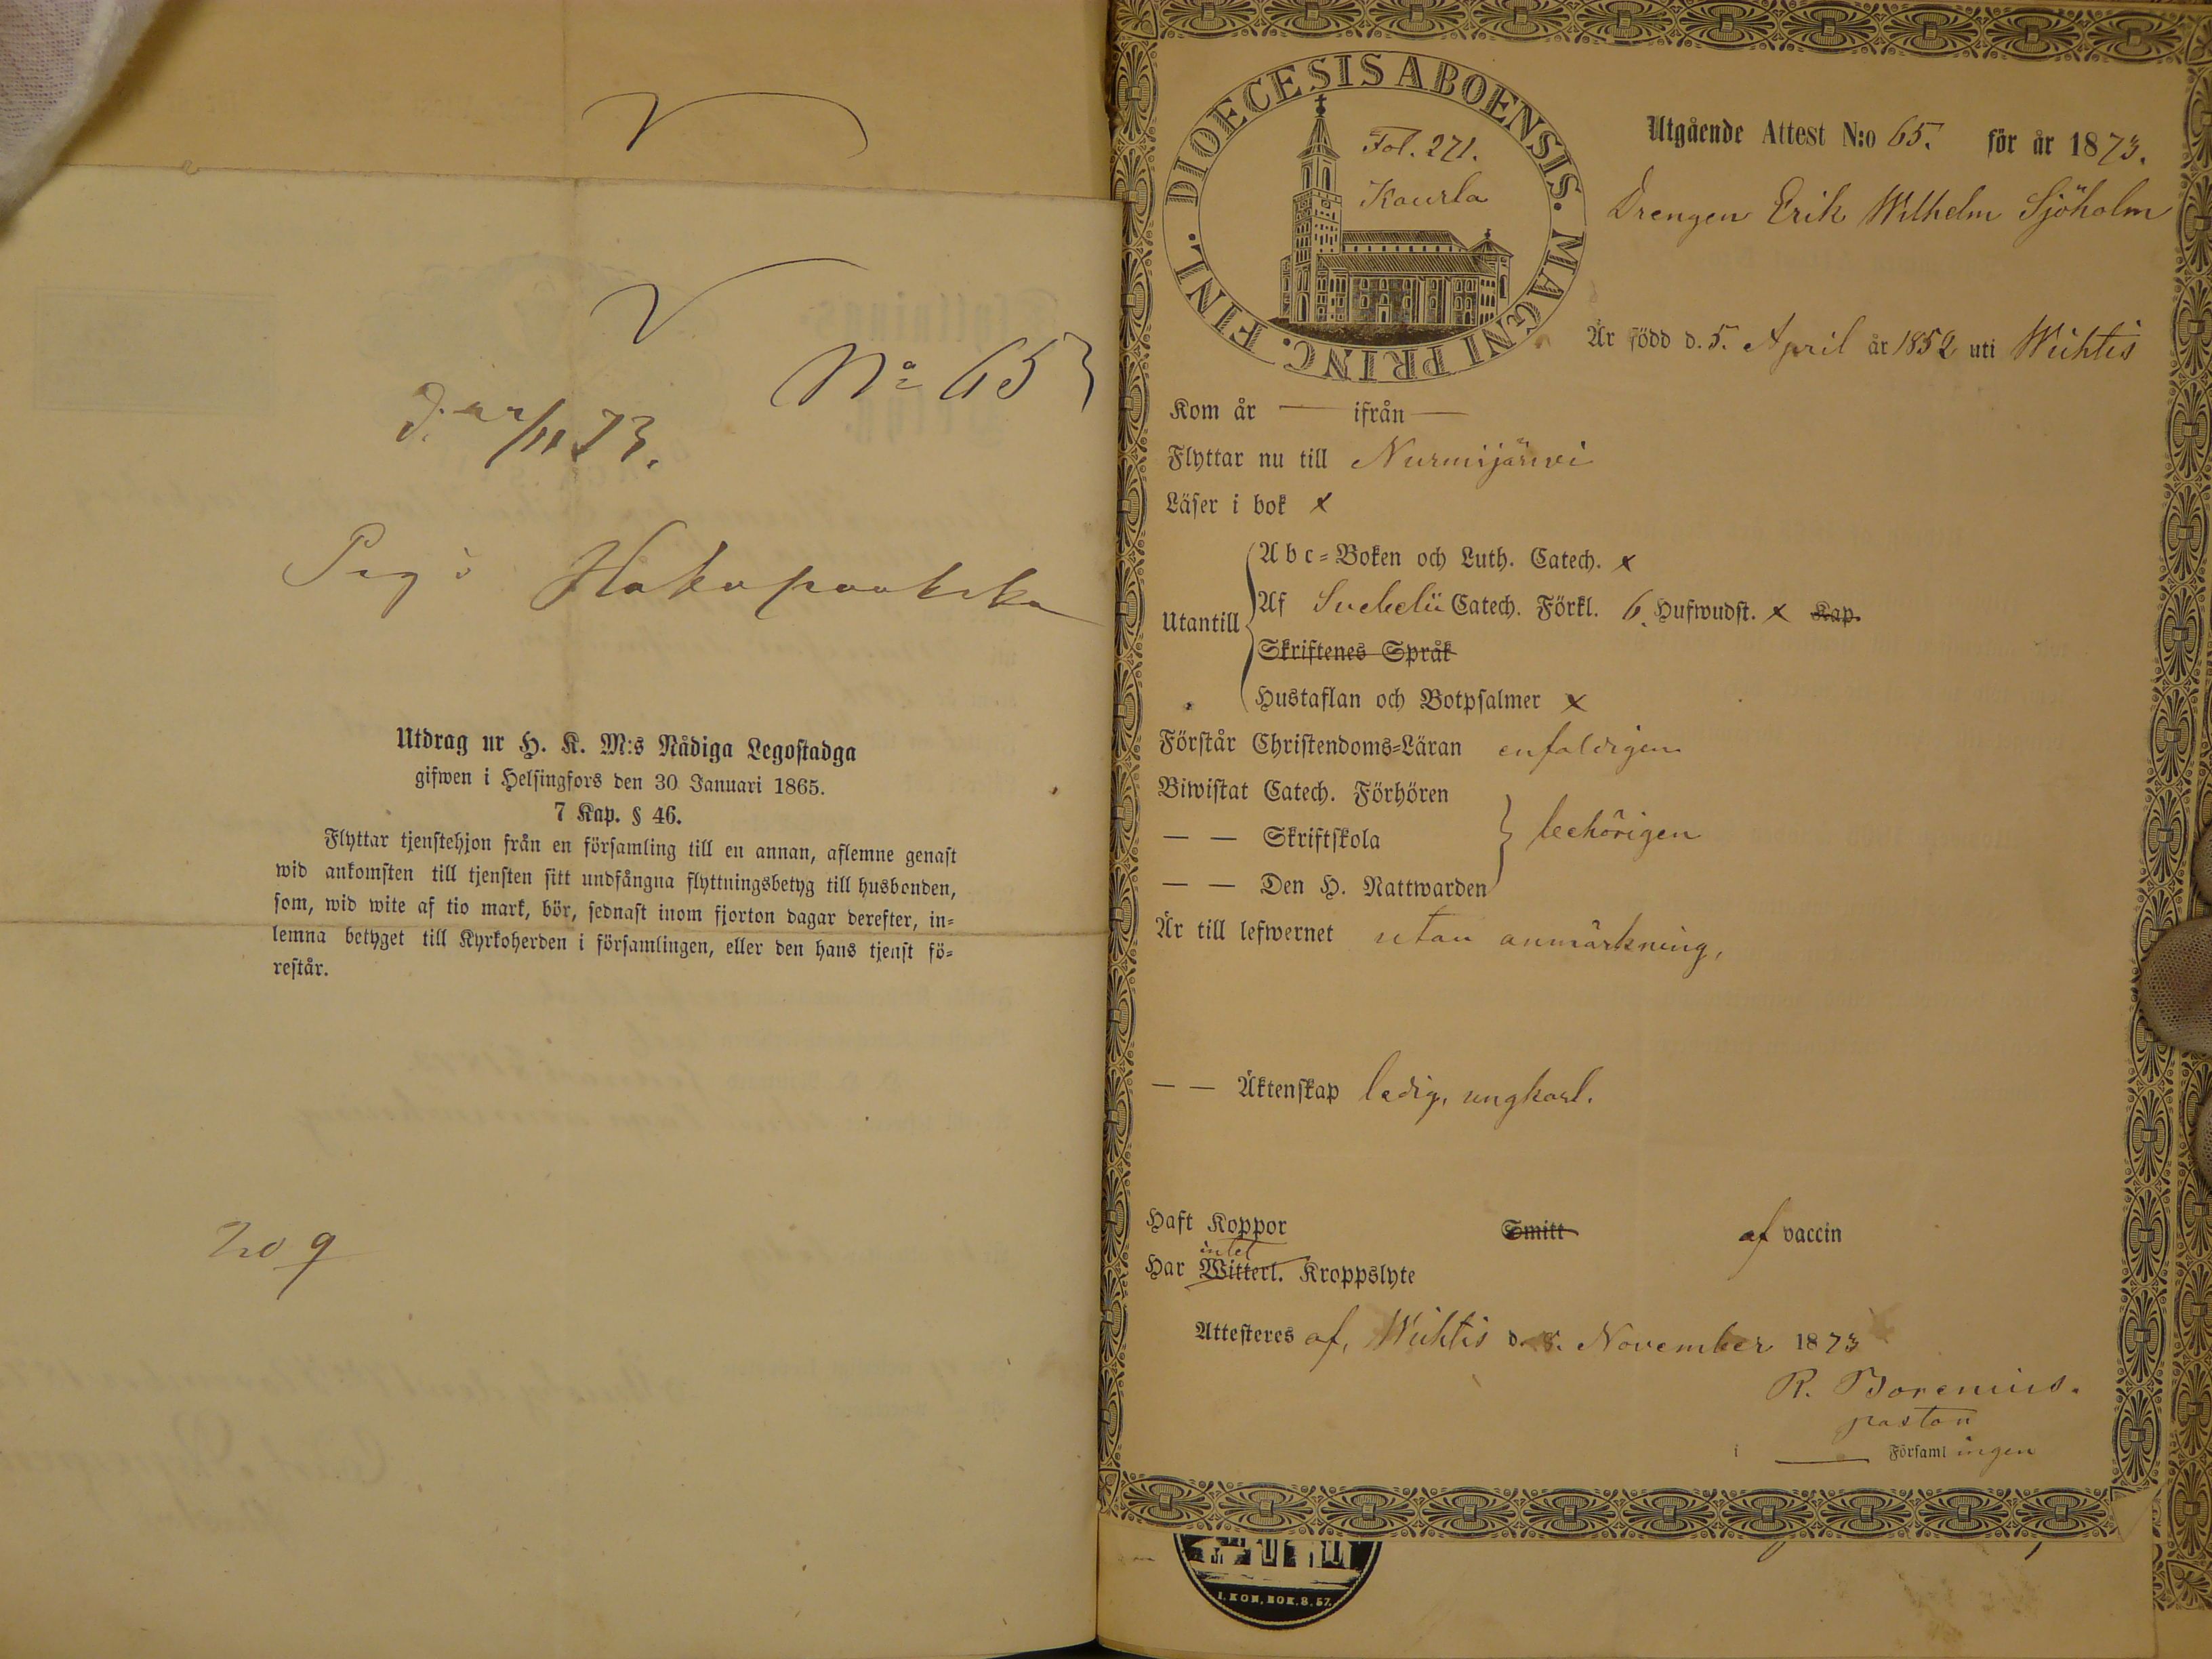 V
V
N:o 65
d. /11 73.
Utdrag ur H. K. M:s Nådiga Legostadga
gifwen i Helsingfors den 30 Januari 1865.
7 Kap. § 46.
Flyttar tjenstehjon från en församling till en annan, aflemne genast
wid ankomsten till tjensten sitt undfångna flyttningsbetyg till husbonden,
som, wid wite af tio mark, bör, sednast inom fjorton dagar derefter, in=
lemna betyget till Kyrkoherden i församlingen, eller den hans tjenst fö=
restår.
209
DIOECESIS ABOENSIS. MAGNI PRINC. FINL.
Fol. 271.
Kourla
Utgående Attest N:o 65. för år 1873.
Drengen Erik Wilhelm Sjöholm
Är född d. 5. April år 1852 uti Wichtis
Kom år — ifrån —
Flyttar nu till Nurmijärwi
Läser i bok x
Utantill
Abc=Boken och Luth. Catech. x
Af Svebelii Catech. Förkl. 6. Hufwudst. x Kap.
Skriftenes Språk
Hustaflan och Botpsalmer x
Förstår Christendoms=Läran enfaldigen
Biwistat Catech. Förhören
— — Skriftskola
behörigen
— — Den H. Nattwarden
Är till lefwernet utan anmärkning,
— — Äktenskap ledig, ungkarl.
Haft Koppor Smitt af vaccin
intet
Har Witterl. Kroppslyte
Attesteres af, Wichtis d. 8. November 1873
R. Borenius.
pastor
i — Församlingen
I. KON. BOK. 8. 57.